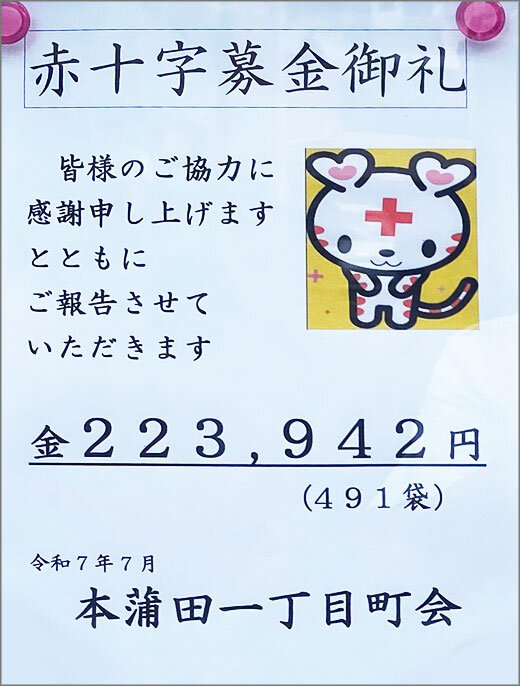 赤十字募金御礼
皆様のご協力に
感謝申し上げます
とともに
ご報告させて
いただきます
金２２３，９４２円
（４９１袋）
令和７年７月
本蒲田一丁目町会